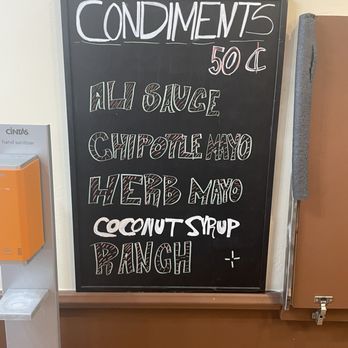 CONDIMENTS
50¢
ALI SAUCE
CHIPOTLE MAYO
HERB MAYO
COCONUT SYRUP
RANCH
CINTAS
hand sanitizer